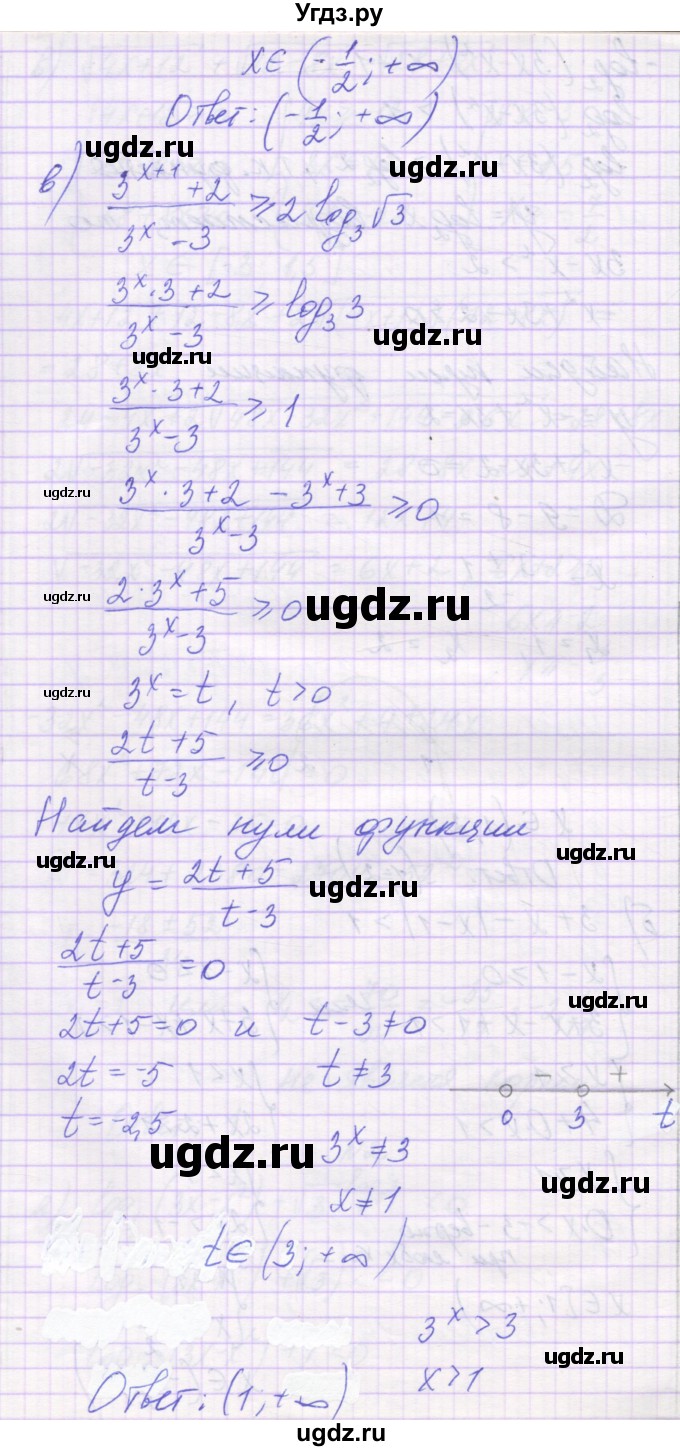 Угдз.ру
x ∈ (-1/2; +∞)
Ответ: (-1/2; +∞)
ugdz.ru
в) (3^(x+1) + 2)/(3^x - 3) ⩾ 2 log_3 √3
(3^x · 3 + 2)/(3^x - 3) ⩾ log_3 3
ugdz.ru
ugdz.ru
(3^x · 3 + 2)/(3^x - 3) ⩾ 1
ugdz.ru
(3^x · 3 + 2 - 3^x + 3)/(3^x - 3) ⩾ 0
ugdz.ru
(2 · 3^x + 5)/(3^x - 3) ⩾ 0
ugdz.ru
ugdz.ru
3^x = t, t > 0
(2t + 5)/(t - 3) ⩾ 0
Найдем нули функции
ugdz.ru
ugdz.ru
y = (2t + 5)/(t - 3)
ugdz.ru
(2t + 5)/(t - 3) = 0
ugdz.ru
2t + 5 = 0 и t - 3 ≠ 0
2t = -5 t ≠ 3
- +
0 3 t
t = -2,5
ugdz.ru
3^x ≠ 3
ugdz.ru
x ≠ 1
t ∈ (3; +∞)
3^x > 3
ugdz.ru
x > 1
Ответ: (1; +∞)
ugdz.ru